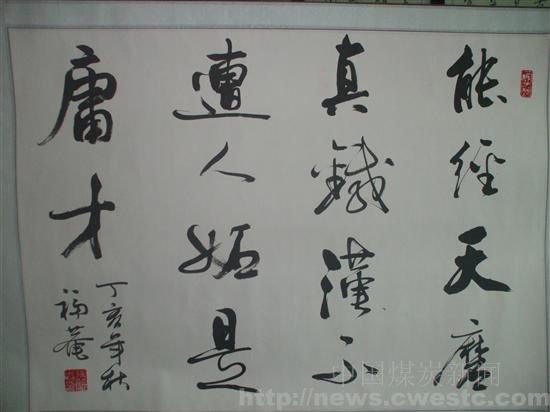 能經天磨
真鐵漢不
遭人妬是
庸才
丁亥年秋
福菴
中国煤炭新闻
http://news.cwestc.com